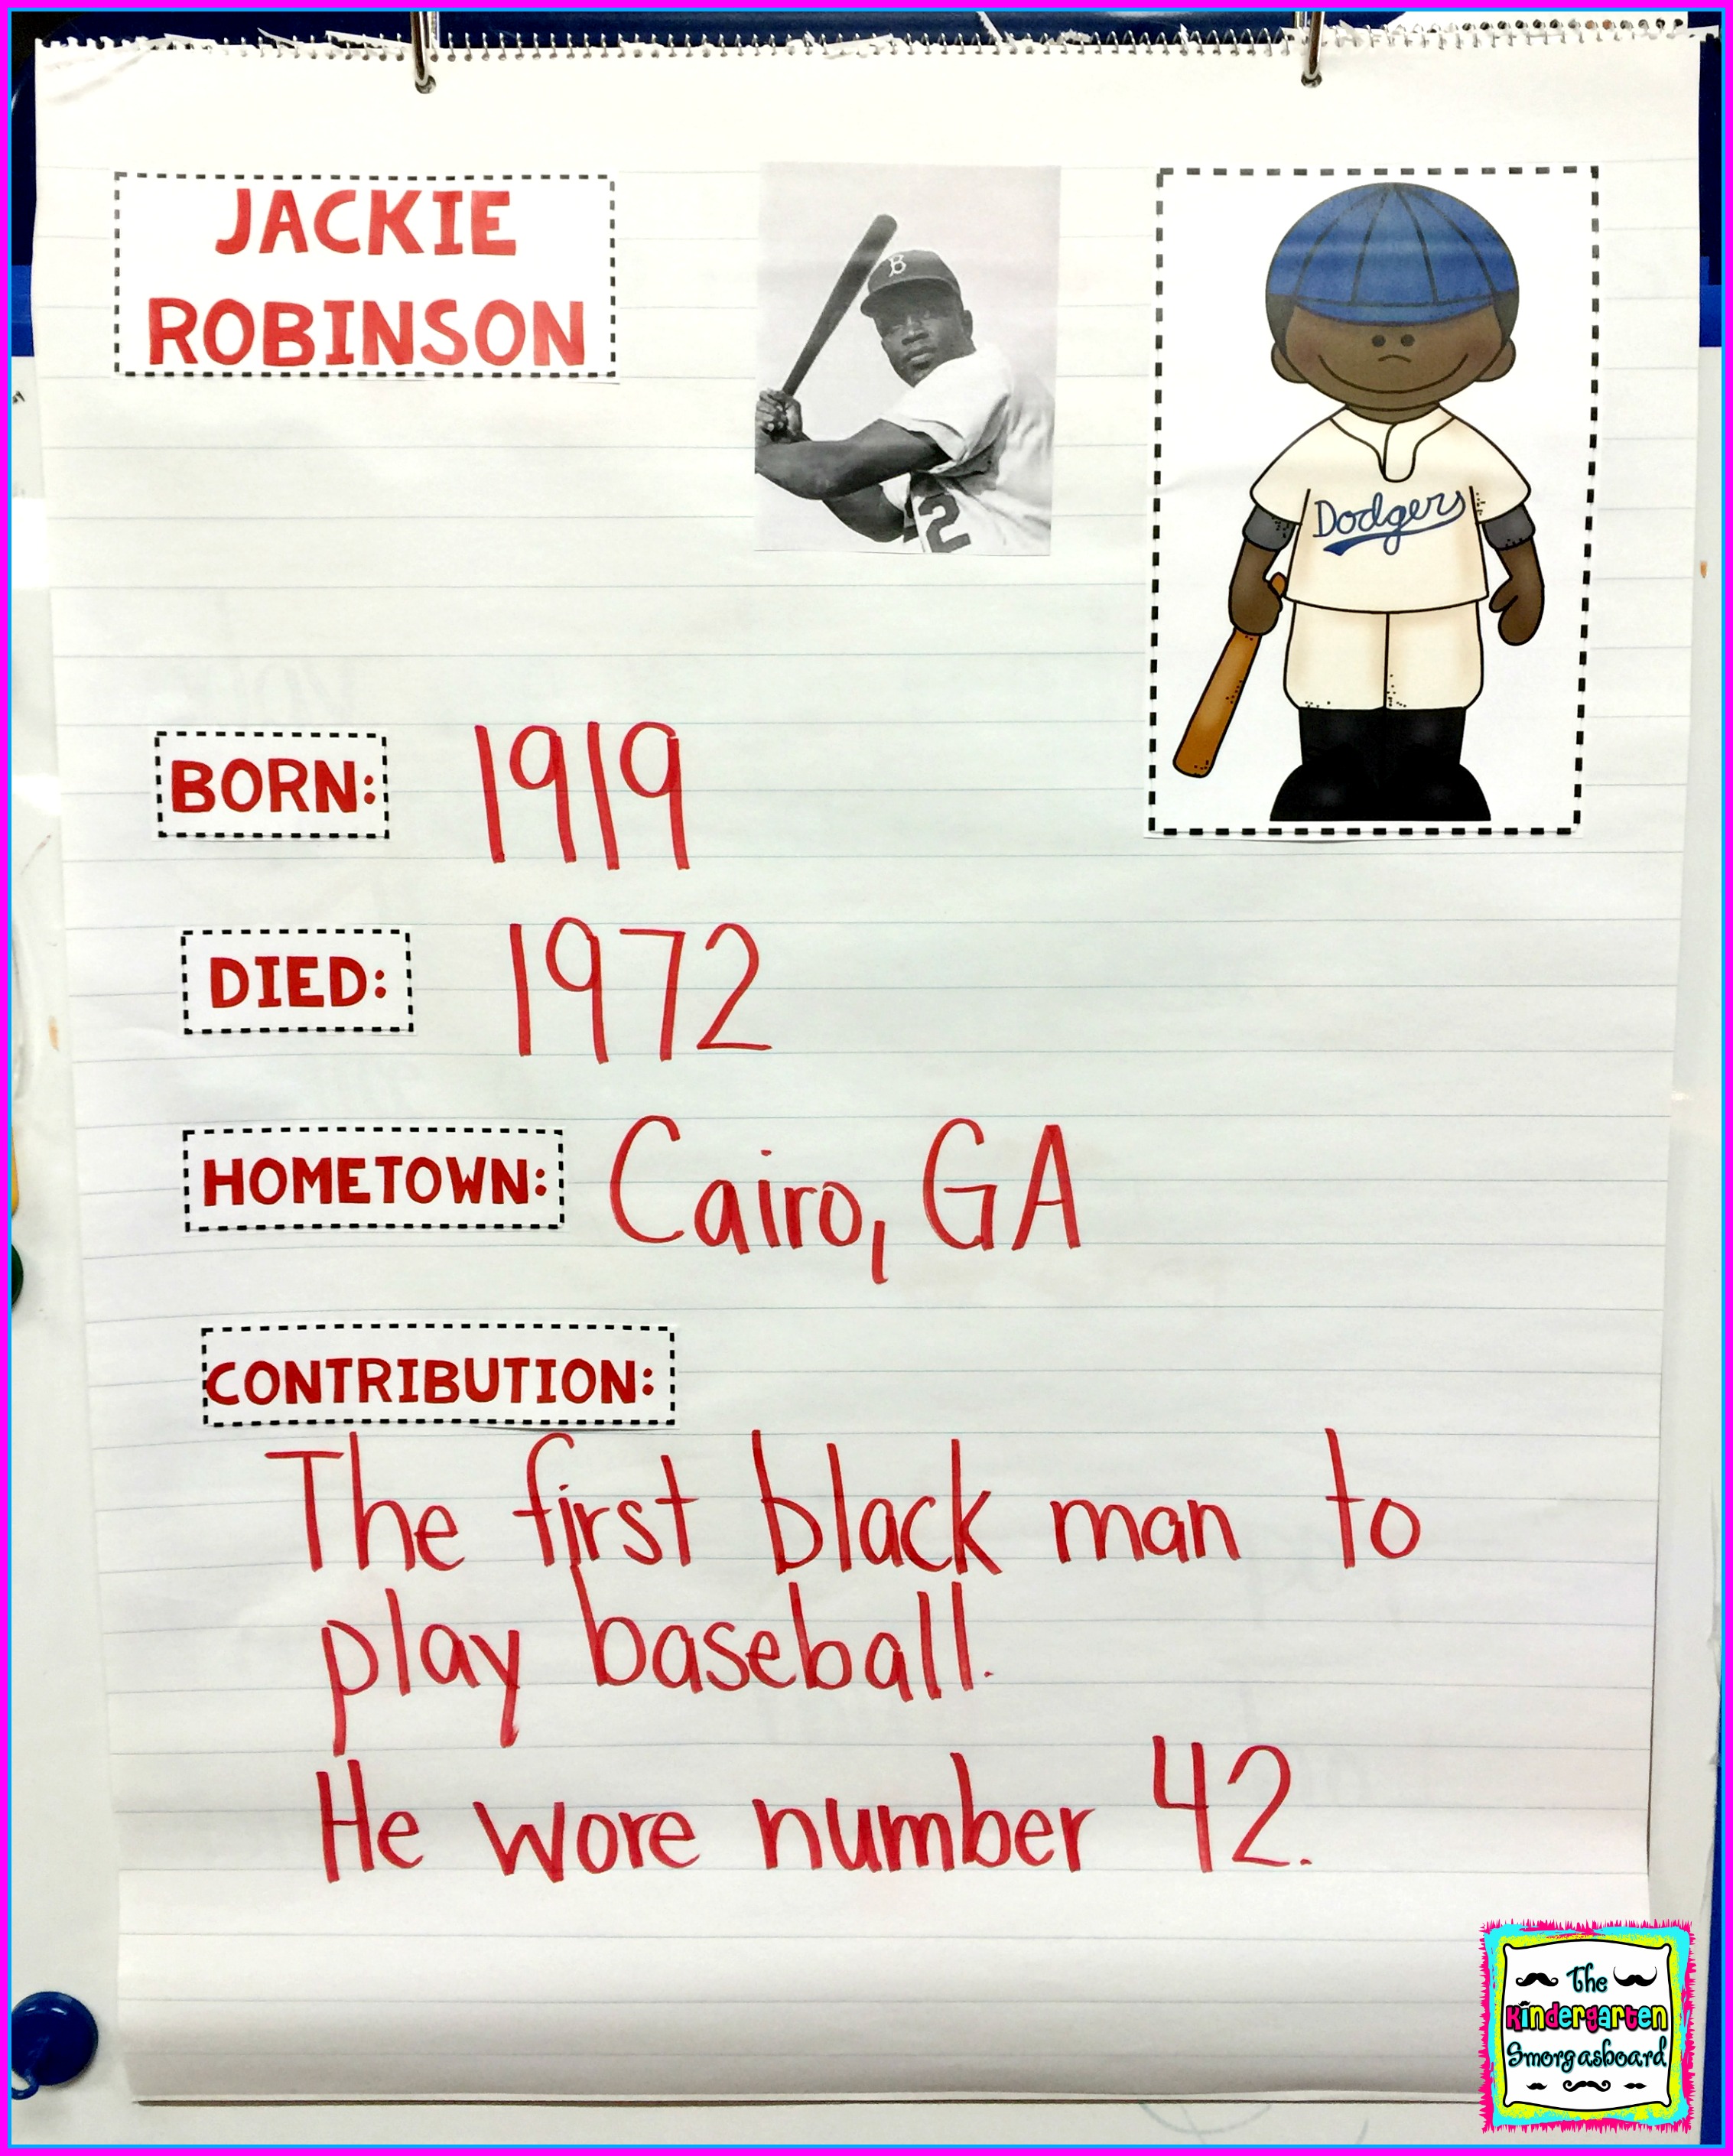 JACKIE
ROBINSON
B
2
Dodgers
BORN: 1919
DIED: 1972
HOMETOWN: Cairo, GA
CONTRIBUTION:
The first black man to
play baseball.
He wore number 42.
The
Kindergarten
Smorgasboard